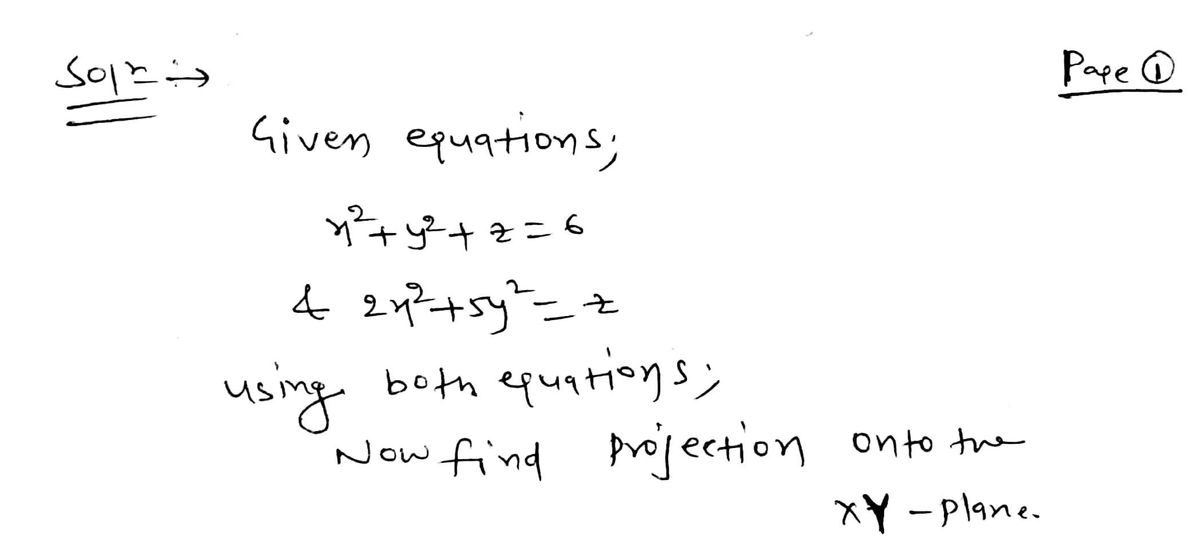 Solⁿ :→
Page ①
Given equations;
x² + y² + z = 6
& 2x² + 5y² = z
using both equations;
Now find projection onto the
XY - plane.